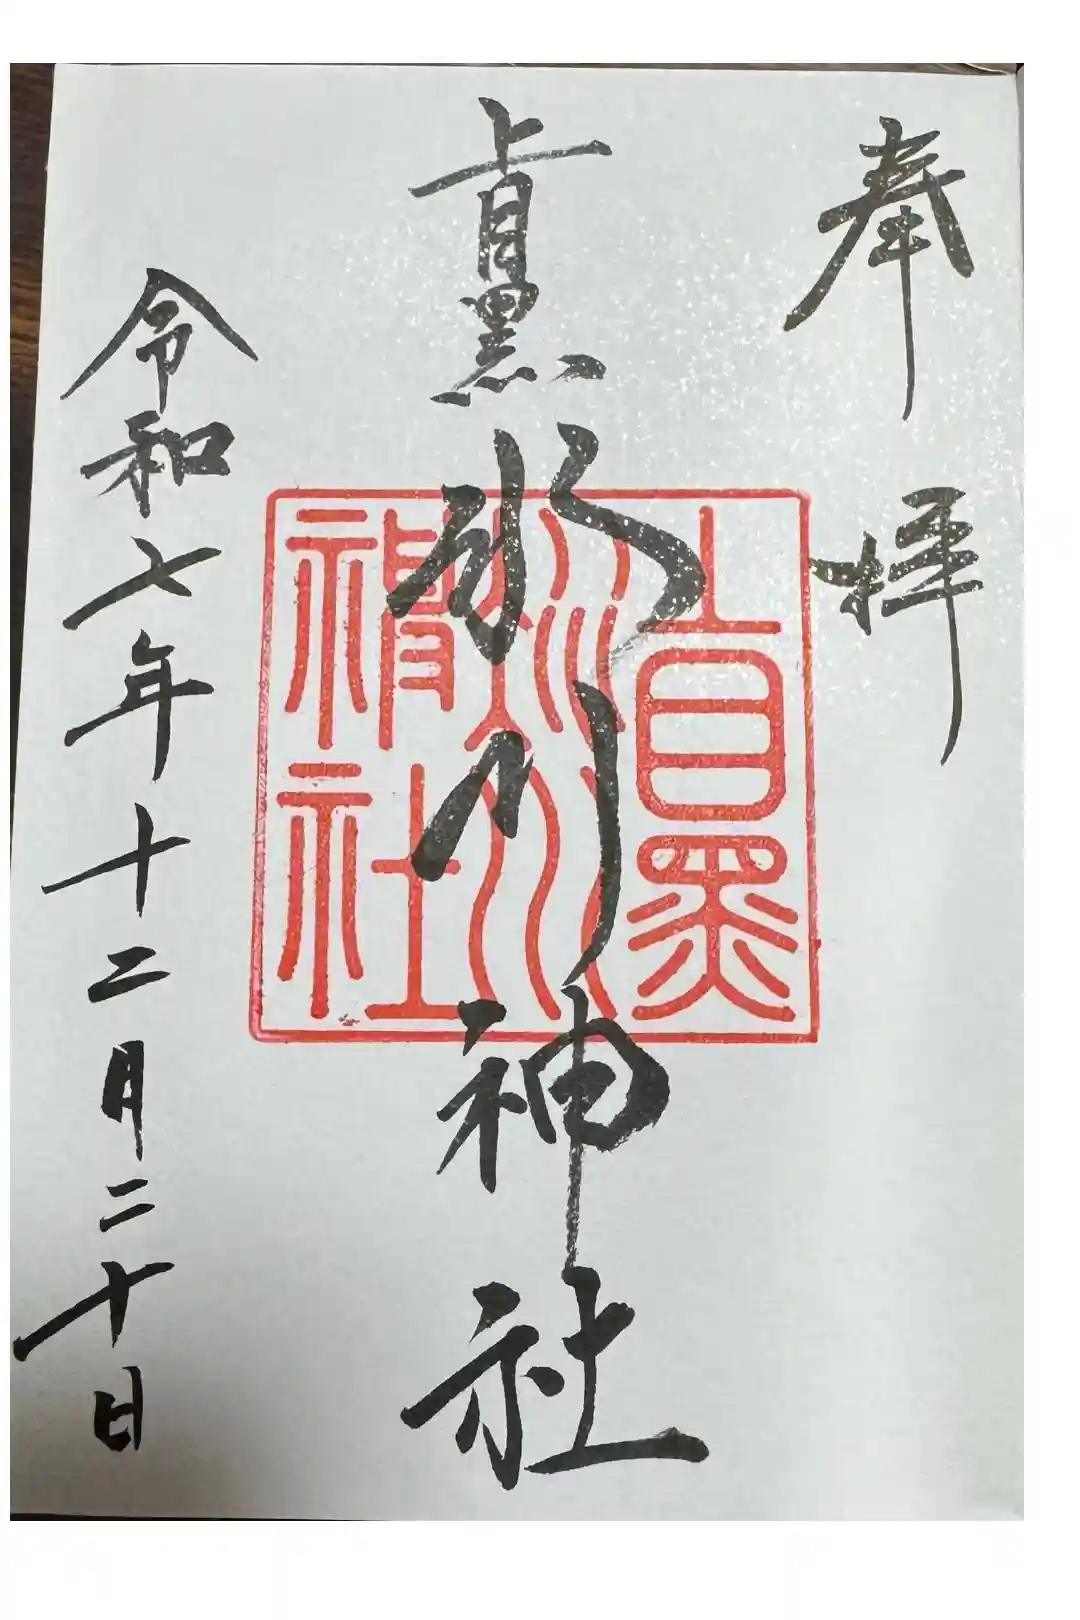 奉拝
上目黒氷川神社
上目黒
氷川
神社
令和七年十二月二十日